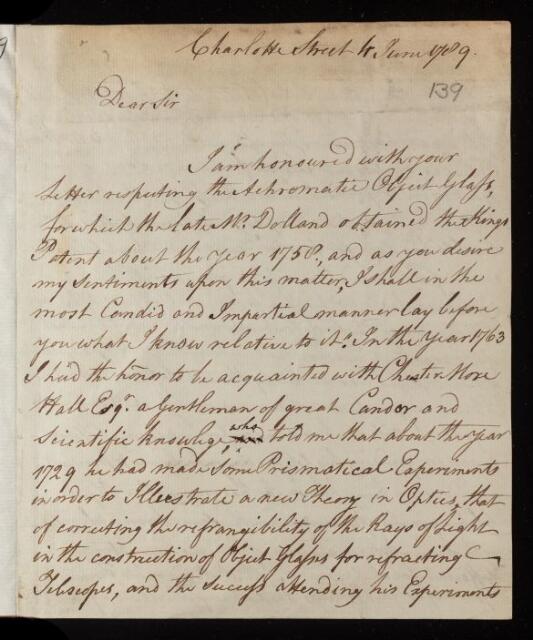 Charlotte Street 4 June 1789.
139
Dear Sir
I am honoured with your
Letter respecting the Achromatic Object Glass,
for which the late Mr. Dolland obtained the Kings
Patent about the Year 1758, and as you desire
my Sentiments upon this matter, I shall in the
most Candid and Impartial manner lay before
you what I know relative to it. In the Year 1763
I had the honor to be acquainted with Chester More
Hall Esqr. a Gentleman of great Candor and
Scientific knowlege who told me that about the Year
1729 he had made some Prismatical Experiments
in order to Illustrate a new Theory in Optics, that
of correcting the refrangibility of the Rays of Light
in the construction of Object Glasses for refracting
Telscopes, and the success attending his Experiments